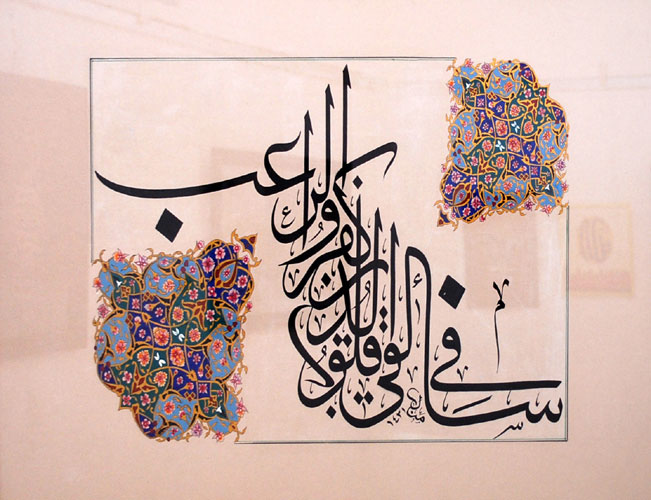 سألقي في قلوب الذين كفروا الرعب